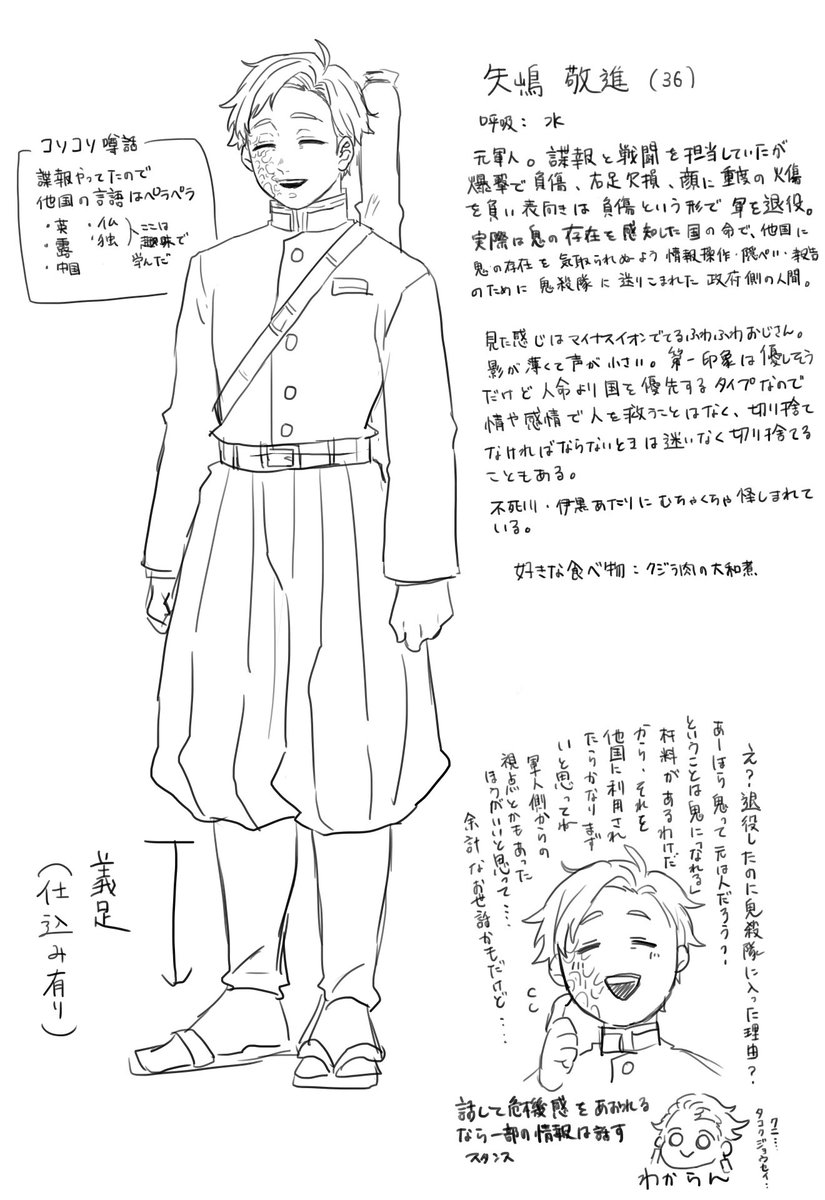 矢嶋 敬進 (36)
呼吸: 水
元軍人。諜報と戦闘を担当していたが
爆撃で負傷、右足欠損、顔に重度の火傷
を負い表向きは負傷という形で軍を退役。
実際は鬼の存在を感知した国の命で、他国に
鬼の存在を気取られぬよう情報操作・隠ぺい・報告
のために鬼殺隊に送りこまれた政府側の人間。
見た感じはマイナスイオンでてるふわふわおじさん。
影が薄くて声が小さい。第一印象は優しそう
だけど人命より国を優先するタイプなので
情や感情で人を救うことはなく、切り捨て
なければならないときは迷いなく切り捨てる
こともある。
不死川・伊黒あたりにむちゃくちゃ怪しまれて
いる。
好きな食べ物:クジラ肉の大和煮
コソコソ噂話
諜報やってたので
他国の言語はペラペラ
・英 ・仏
・露 ・独
・中国
ここは
趣味で
学んだ
義足
(仕込み有り)
え?退役したのに鬼殺隊に入った理由?
あーほら鬼って元は人だろう?
ということは鬼に「なれる」
材料があるわけだ
から、それを
他国に利用され
たらかなりまず
いと思ってね
軍人側からの
視点とかもあった
ほうがいいと思って…
余計なお世話かもだけど…
話して危機感をあおれる
なら一部の情報は話す
スタンス
クニ…
タコクジョウセイ…
わからん